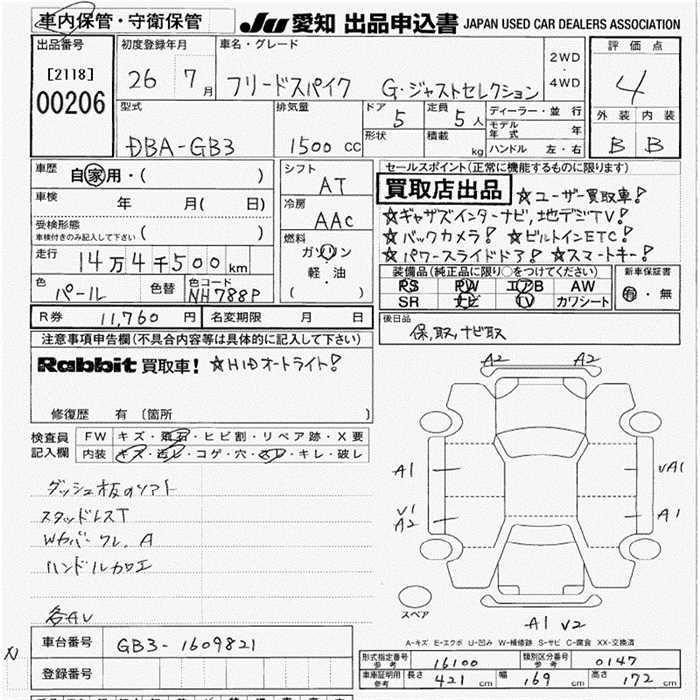 車内保管・守衛保管
JU 愛知 出品申込書 JAPAN USED CAR DEALERS ASSOCIATION
出品番号
[2118]
00206
初度登録年月
26 7月
車名・グレード
フリードスパイク G・ジャストセレクション
2WD
・
4WD
評価点
4
外装 内装
B B
型式
DBA-GB3
排気量
1500 CC
ドア 5
形状
定員 5人
積載 kg
ディーラー・並行
モデル年式 年
ハンドル 左・右
車歴 自家用・( )
車検 年 月( 日)
受検形態
車検付きのみ記入して下さい ( )
走行 14万4千500km
色 パール 色替 色コード NH788P
シフト
AT
冷房
AAC
燃料
ガソリン
軽・油
( )
セールスポイント(正常に機能するものに限ります)
買取店出品 ☆ユーザー買取車!
☆ギャザズインターナビ,地デジTV!
☆バックカメラ! ☆ビルトインETC!
☆パワースライドドア! ☆スマートキー!
装備品(純正品に限り○をつけてください)
PS PW エアB AW
SR ナビ TV カワシート
新車保証書
有・無
R券 11,760円 名変期限 月 日
後日品
保,取,ナビ取
注意事項申告欄(不具合内容等は具体的に記入して下さい)
Rabbit 買取車! ☆HIDオートライト!
修復歴 有 〔箇所 〕
検査員記入欄
FW キズ・飛石・ヒビ割・リペア跡・X要
内装 キズ・汚レ・コゲ・穴・スレ・キレ・破レ
ダッシュ板のソフト
スタッドレスT
ハンドルカロエ
各AU
A2 A2
A1 UA1
U1
A2 A1
スペア
A1 U2
A-キズ E-エクボ U-凹み W-補修跡 S-サビ C-腐食 XX-交換済
車台番号 GB3-1609821
登録番号
形式指定番号 参考 16100 類別区分番号 参考 0147
車庫証明用 参考 長さ 421cm 幅 169cm 高さ 172cm